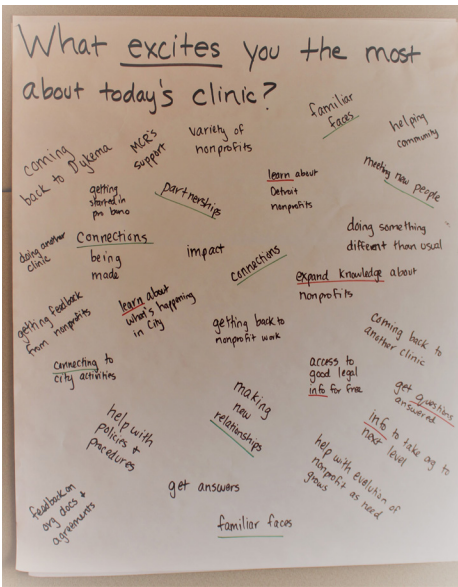 What excites you the most
about today's clinic?
familiar
faces
helping
community
variety of
nonprofits
MCR's
support
coming
back to Dykema
meeting new people
learn about
Detroit
nonprofits
partnerships
getting
started in
pro bono
doing something
different than usual
doing another
clinic
Connections
being
made
impact
connections
expand knowledge about
nonprofits
learn about
what's happening
in City
getting feedback
from nonprofits
getting back to
nonprofit work
coming back to
another clinic
connecting to
city activities
access to
good legal
info for free
get questions
answered
making
new
relationships
info to take org to
next level
help with
policies +
procedures
help with evolution of
nonprofit as need
grows
get answers
feedback on
org docs +
agreements
familiar faces